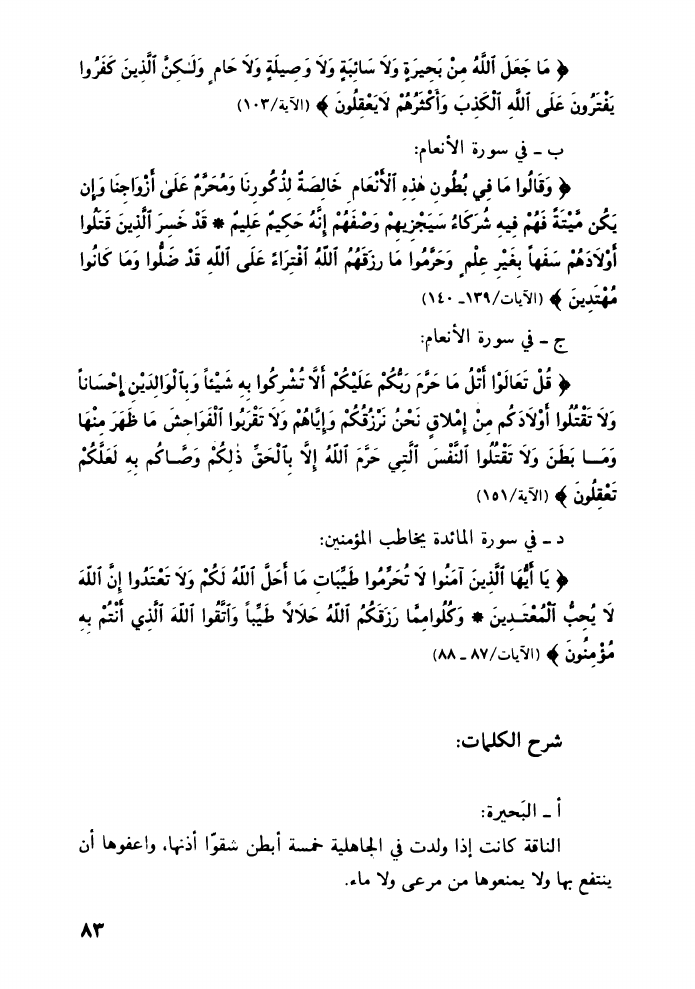 ﴿ مَا جَعَلَ ٱللَّهُ مِنْ بَحِيرَةٍ وَلَا سَائِبَةٍ وَلَا وَصِيلَةٍ وَلَا حَامٍ وَلَـٰكِنَّ ٱلَّذِينَ كَفَرُوا
يَفْتَرُونَ عَلَى ٱللَّهِ ٱلْكَذِبَ وَأَكْثَرُهُمْ لَايَعْقِلُونَ ﴾ (الآية/١٠٣)
ب ـ في سورة الأنعام:
﴿ وَقَالُوا مَا فِي بُطُونِ هٰذِهِ ٱلْأَنْعَامِ خَالِصَةٌ لِذُكُورِنَا وَمُحَرَّمٌ عَلَىٰ أَزْوَاجِنَا وَإِن
يَكُن مَّيْتَةً فَهُمْ فِيهِ شُرَكَاءُ سَيَجْزِيهِمْ وَصْفَهُمْ إِنَّهُ حَكِيمٌ عَلِيمٌ * قَدْ خَسِرَ ٱلَّذِينَ قَتَلُوا
أَوْلَادَهُمْ سَفَهاً بِغَيْرِ عِلْمٍ وَحَرَّمُوا مَا رزَقَهُمُ ٱللَّهُ ٱفْتِرَاءً عَلَى ٱللَّهِ قَدْ ضَلُّوا وَمَا كَانُوا
مُهْتَدِينَ ﴾ (الآيات/١٣٩ـ ١٤٠)
ج ـ في سورة الأنعام:
﴿ قُلْ تَعَالَوْا أَتْلُ مَا حَرَّمَ رَبُّكُمْ عَلَيْكُمْ أَلَّا تُشْرِكُوا بِهِ شَيْئاً وَبِٱلْوَالِدَيْنِ إِحْسَاناً
وَلَا تَقْتُلُوا أَوْلَادَكُم مِنْ إِمْلَاقٍ نَحْنُ نَرْزُقُكُمْ وَإِيَّاهُمْ وَلَا تَقْرَبُوا ٱلْفَوَاحِشَ مَا ظَهَرَ مِنْهَا
وَمَــا بَطَنَ وَلَا تَقْتُلُوا ٱلنَّفْسَ ٱلَّتِي حَرَّمَ ٱللَّهُ إِلَّا بِٱلْحَقِّ ذٰلِكُمْ وَصَّـاكُم بِهِ لَعَلَّكُمْ
تَعْقِلُونَ ﴾ (الآية/١٥١)
د ـ في سورة المائدة يخاطب المؤمنين:
﴿ يَا أَيُّهَا ٱلَّذِينَ آمَنُوا لَا تُحَرِّمُوا طَيِّبَاتِ مَا أَحَلَّ ٱللَّهُ لَكُمْ وَلَا تَعْتَدُوا إِنَّ ٱللَّهَ
لَا يُحِبُّ ٱلْمُعْتَـدِينَ * وَكُلُوامِمَّا رَزَقَكُمُ ٱللَّهُ حَلَالًا طَيِّباً وَٱتَّقُوا ٱللَّهَ ٱلَّذِي أَنْتُمْ بِهِ
مُؤْمِنُونَ ﴾ (الآيات/٨٧ ـ ٨٨)
شرح الكلمات:
أ ـ البَحيرة:
الناقة كانت إذا ولدت في الجاهلية خمسة أبطن شقوّا أذنها، واعفوها أن
ينتفع بها ولا يمنعوها من مرعى ولا ماء.
٨٣